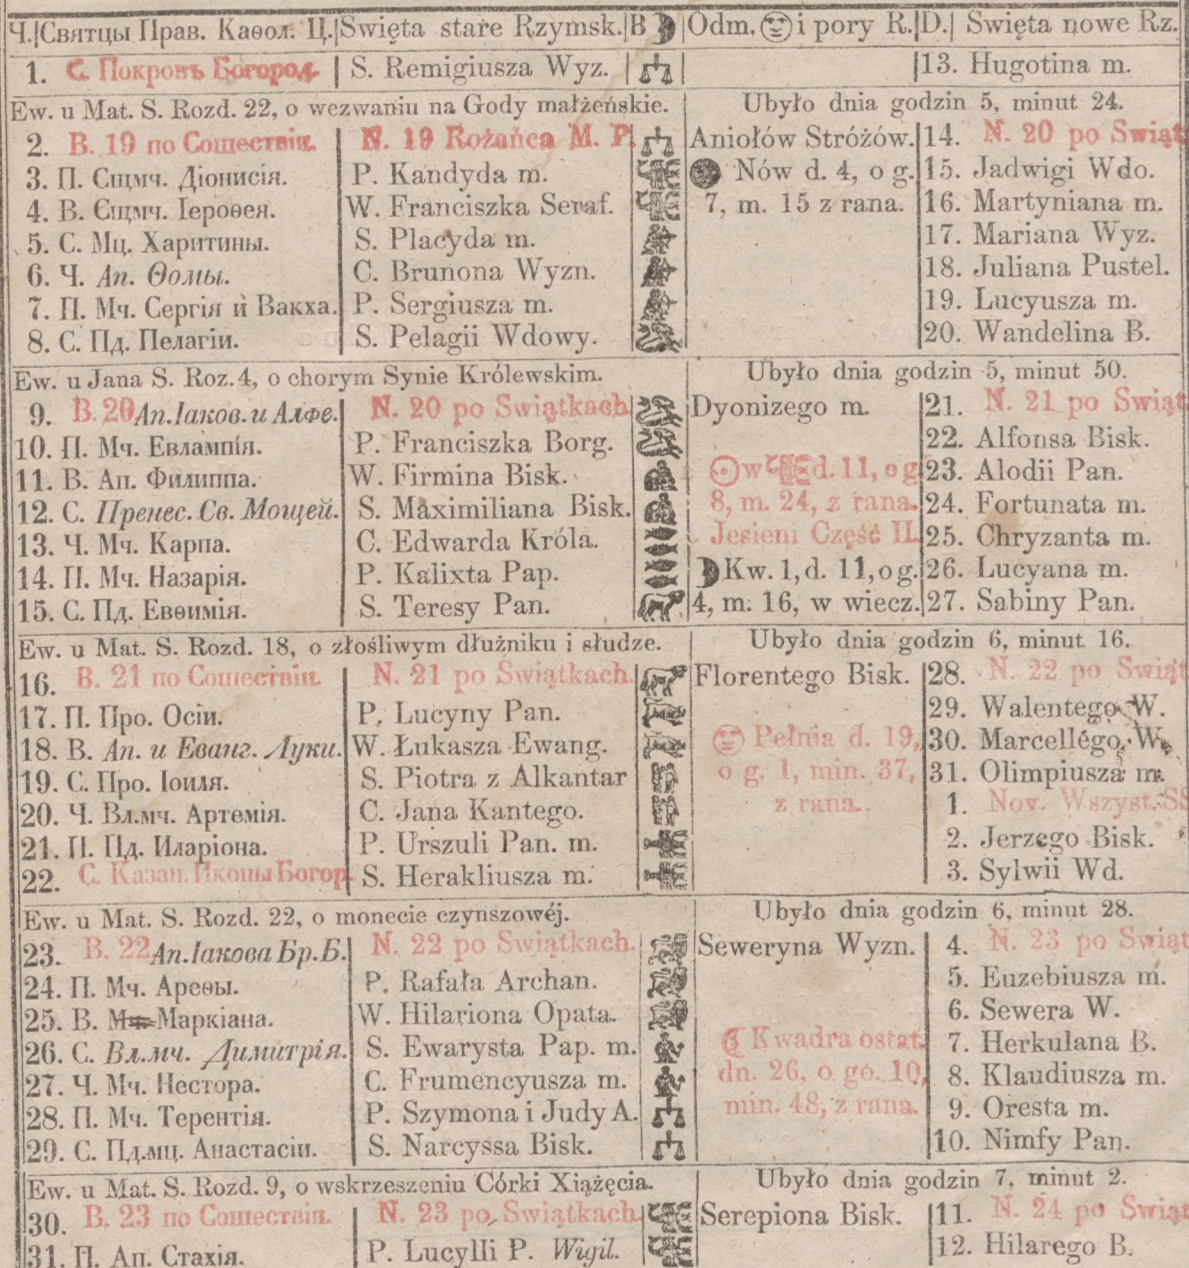 Ч. Святцы Прав. Каѳол. Ц. Swięta stare Rzymsk. B Odm. i pory R. D. Swięta nowe Rz.
1. С. Покровъ Богород. S. Remigiusza Wyz. 13. Hugotina m.
Ew. u Mat. S. Rozd. 22, o wezwaniu na Gody małżeńskie. Ubyło dnia godzin 5, minut 24.
2. В. 19 по Сошествіи. N. 19 Rożańca M. P. Aniołów Stróżów. 14. N. 20 po Swiąt
3. П. Сщмч. Діонисія. P. Kandyda m. Nów d. 4, o g. 15. Jadwigi Wdo.
4. В. Сщмч. Іероѳея. W. Franciszka Seraf. 7, m. 15 z rana. 16. Martyniana m.
5. С. Мц. Харитины. S. Placyda m. 17. Mariana Wyz.
6. Ч. Ап. Ѳомы. C. Brunona Wyzn. 18. Juliana Pustel.
7. П. Мч. Сергія и Вакха. P. Sergiusza m. 19. Lucyusza m.
8. С. Пд. Пелагіи. S. Pelagii Wdowy. 20. Wandelina B.
Ew. u Jana S. Roz. 4, o chorym Synie Królewskim. Ubyło dnia godzin 5, minut 50.
9. В. 20 Ап. Іаков. и Алфе. N. 20 po Swiątkach Dyonizego m. 21. N. 21 po Swiąt
10. П. Мч. Евлампія. P. Franciszka Borg. 22. Alfonsa Bisk.
11. В. Ап. Филиппа. W. Firmina Bisk. w d. 11, o g 23. Alodii Pan.
12. С. Пренес. Св. Мощей. S. Maximiliana Bisk. 8, m. 24, z rana. 24. Fortunata m.
13. Ч. Мч. Карпа. C. Edwarda Króla. Jesieni Część II. 25. Chryzanta m.
14. П. Мч. Назарія. P. Kalixta Pap. Kw. 1, d. 11, o g. 26. Lucyana m.
15. С. Пд. Евѳимія. S. Teresy Pan. 4, m. 16, w wiecz. 27. Sabiny Pan.
Ew. u Mat. S. Rozd. 18, o złośliwym dłużniku i słudze. Ubyło dnia godzin 6, minut 16.
16. В. 21 по Сошествіи. N. 21 po Swiątkach. Florentego Bisk. 28. N. 22 po Swiąt
17. П. Про. Осіи. P. Lucyny Pan. 29. Walentego W.
18. В. Ап. и Еванг. Луки. W. Łukasza Ewang. Pełnia d. 19, 30. Marcellégo W.
19. С. Про. Іоиля. S. Piotra z Alkantar o g. 1, min. 37, 31. Olimpiusza m.
20. Ч. Вл.мч. Артемія. C. Jana Kantego. z rana. 1. Nov. Wszyst. SS
21. П. Пд. Иларіона. P. Urszuli Pan. m. 2. Jerzego Bisk.
22. С. Казан. Иконы Богор S. Herakliusza m. 3. Sylwii Wd.
Ew. u Mat. S. Rozd. 22, o monecie czynszowéj. Ubyło dnia godzin 6, minut 28.
23. В. 22 Ап. Іакова Бр. Б. N. 22 po Swiątkach. Seweryna Wyzn. 4. N. 23 po Swiąt
24. П. Мч. Ареѳы. P. Rafała Archan. 5. Euzebiusza m.
25. В. Маркіана. W. Hilariona Opata. 6. Sewera W.
26. С. Вл.мч. Димитрія. S. Ewarysta Pap. m. Kwadra ostat. 7. Herkulana B.
27. Ч. Мч. Нестора. C. Frumencyusza m. dn. 26, o go. 10, 8. Klaudiusza m.
28. П. Мч. Терентія. P. Szymona i Judy A. min. 48, z rana. 9. Oresta m.
29. С. Пд.мц. Анастасіи. S. Narcyssa Bisk. 10. Nimfy Pan.
Ew. u Mat. S. Rozd. 9, o wskrzeszeniu Córki Xiążęcia. Ubyło dnia godzin 7, minut 2.
30. В. 23 по Сошествіи. N. 23 po Swiątkach Serepiona Bisk. 11. N. 24 po Swiąt
31. П. Ап. Стахія. P. Lucylli P. Wigil. 12. Hilarego B.